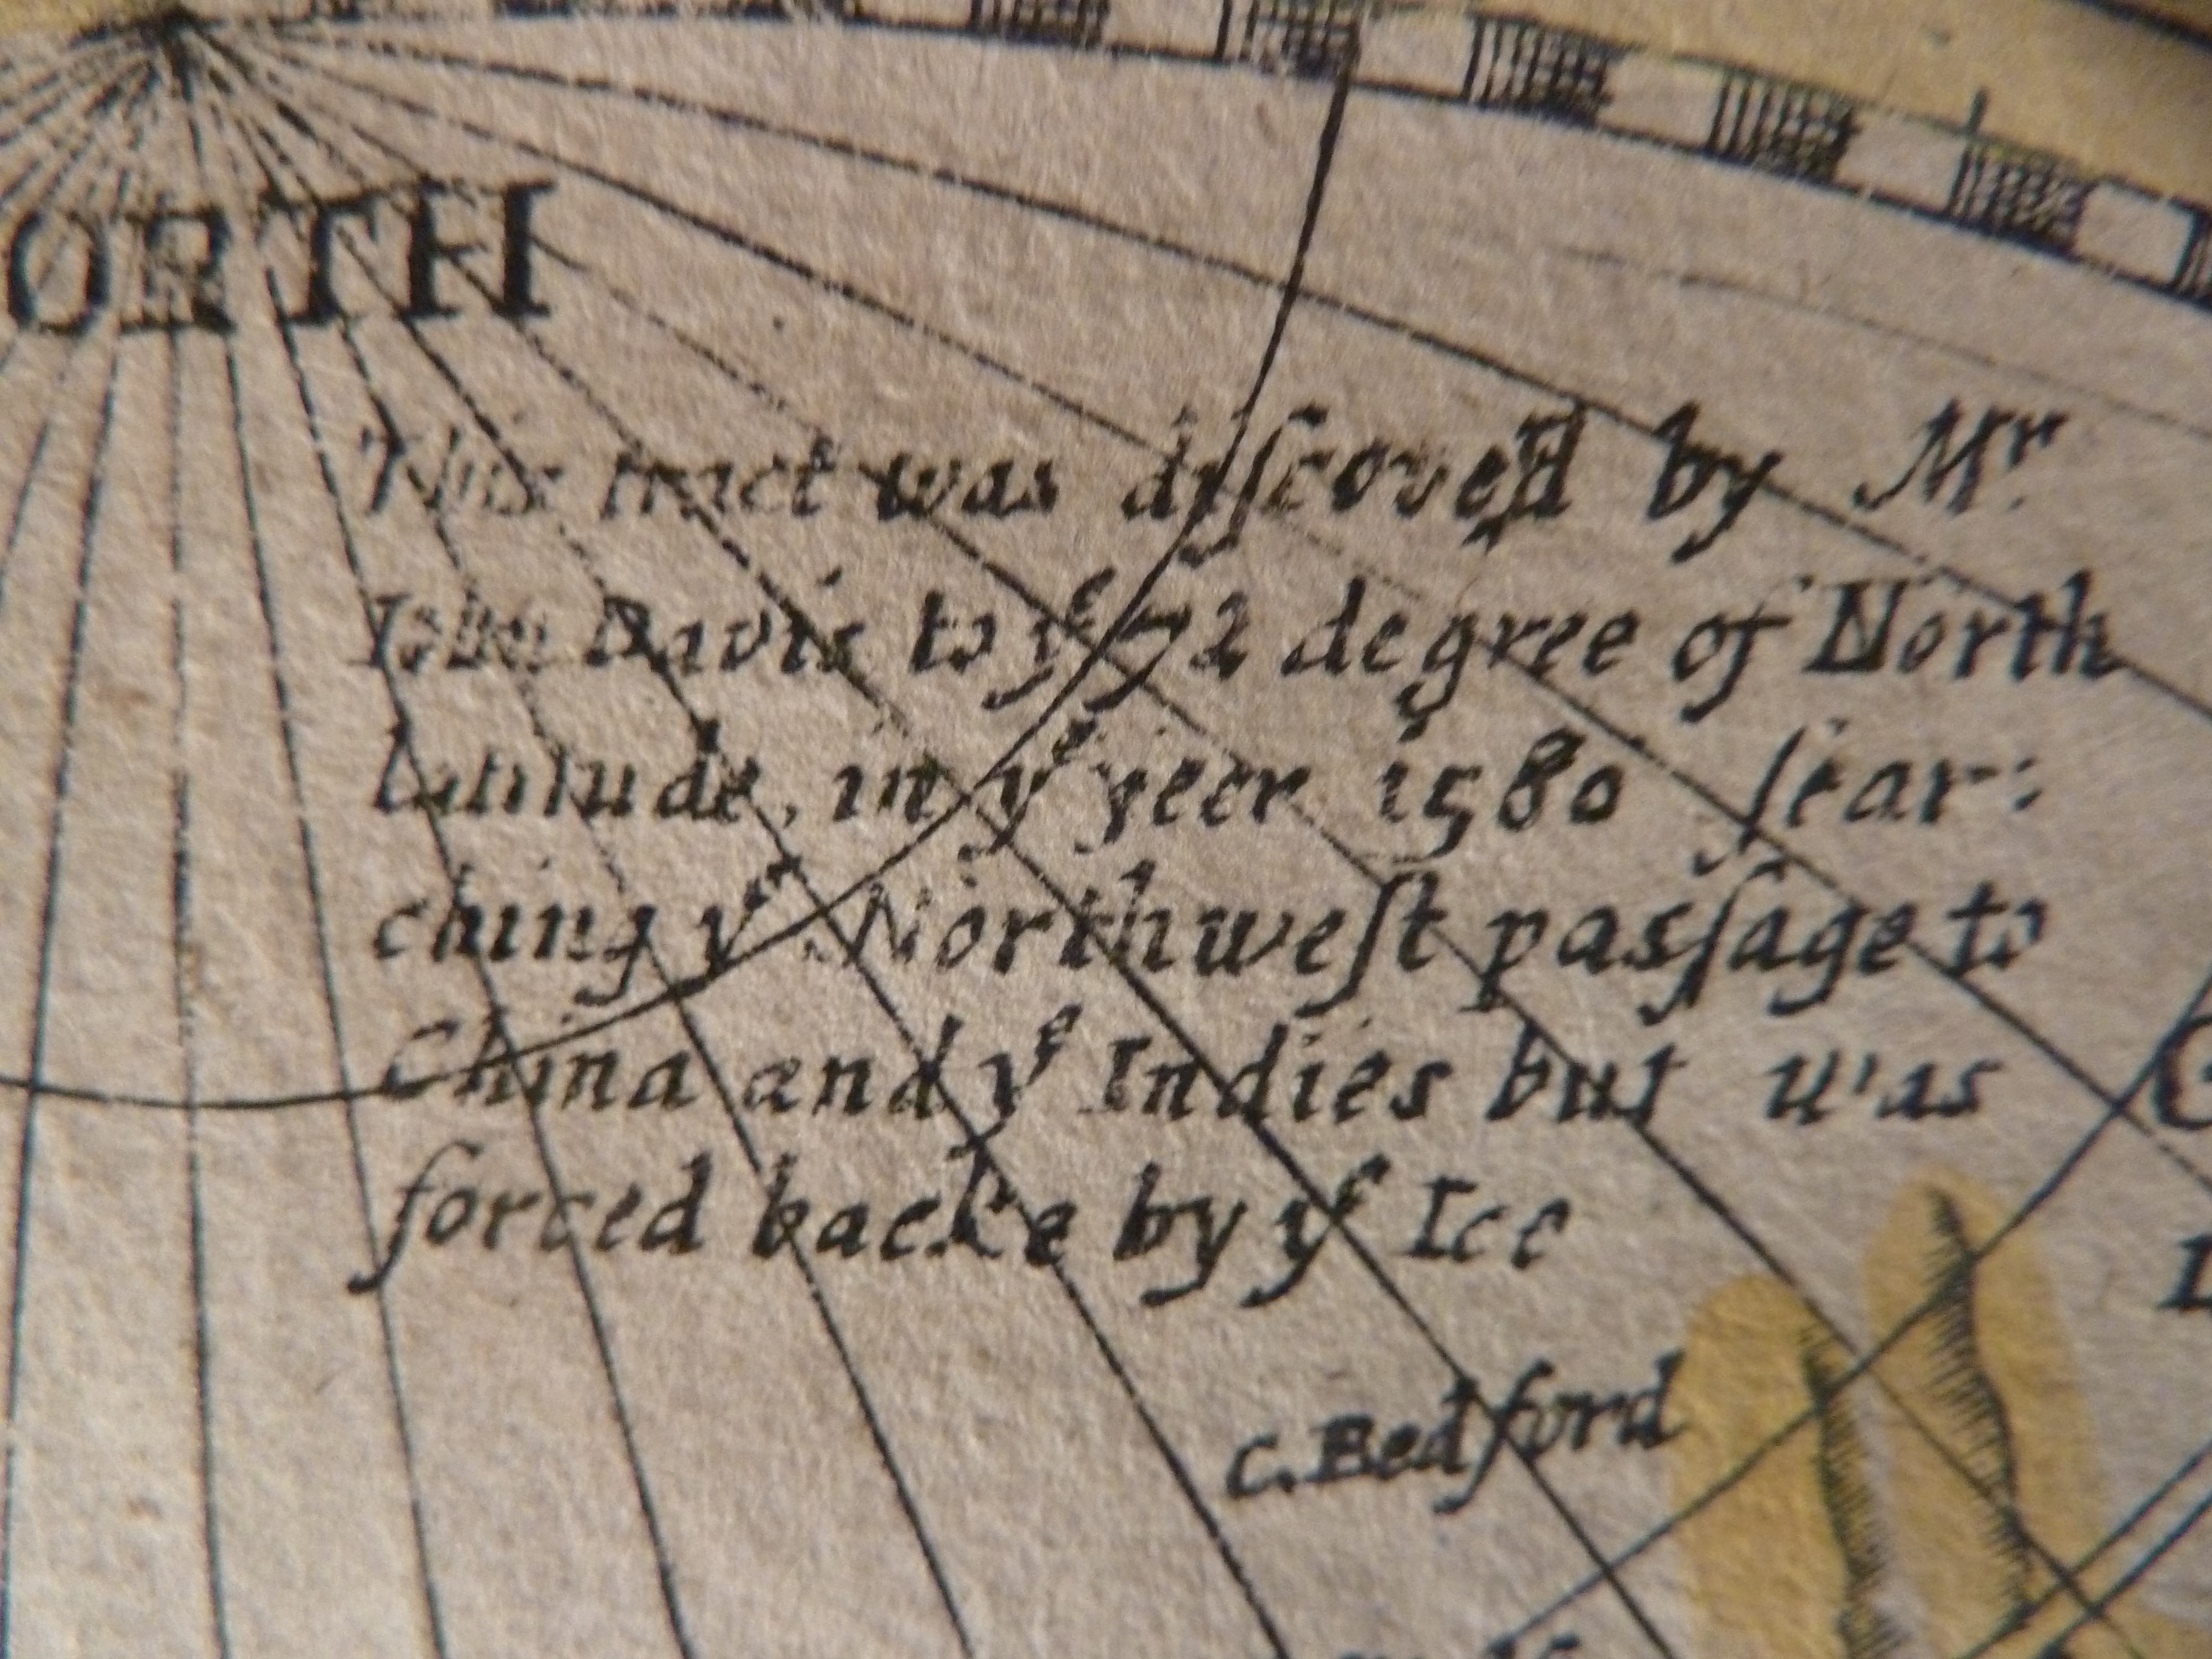 ORTH
This tract was diſcoverd by Mr.
Iohn Davis to yͤ 72 degree of North
latitude, in yͤ yeer 1580 ſear:
ching yͤ Northweſt pasſage to
China and yͤ Indies but was
forced backe by yͤ Ice
C. Bedford